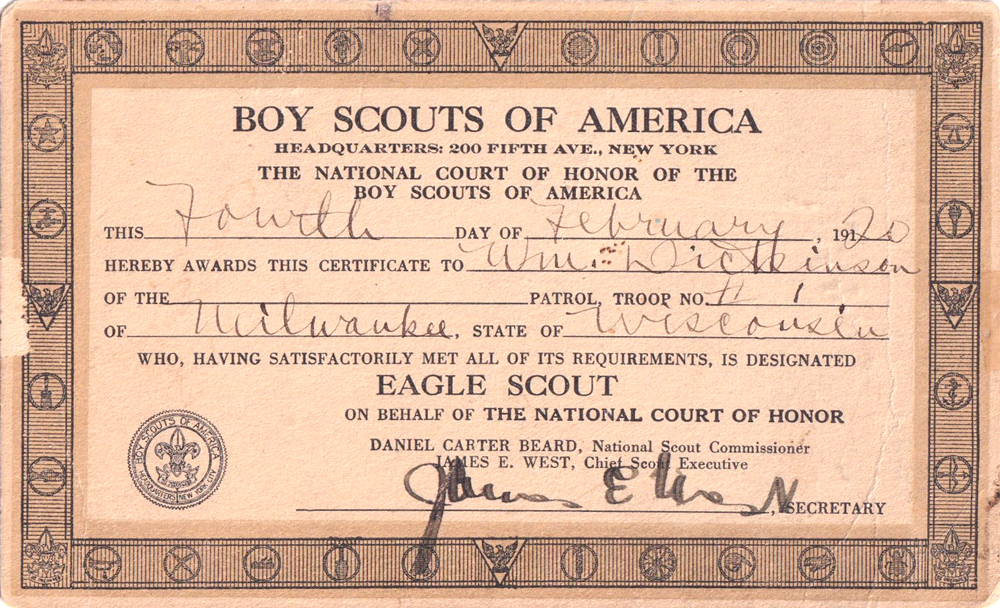 BOY SCOUTS OF AMERICA
HEADQUARTERS: 200 FIFTH AVE., NEW YORK
THE NATIONAL COURT OF HONOR OF THE
BOY SCOUTS OF AMERICA
THIS Fourth DAY OF February, 19120
HEREBY AWARDS THIS CERTIFICATE TO Wm. Dickinson
OF THE PATROL, TROOP NO. # 1
OF Milwaukee, STATE OF Wisconsin
WHO, HAVING SATISFACTORILY MET ALL OF ITS REQUIREMENTS, IS DESIGNATED
EAGLE SCOUT
ON BEHALF OF THE NATIONAL COURT OF HONOR
DANIEL CARTER BEARD, National Scout Commissioner
JAMES E. WEST, Chief Scout Executive
James E West, SECRETARY
BOY SCOUTS OF AMERICA
HEADQUARTERS NEW YORK CITY